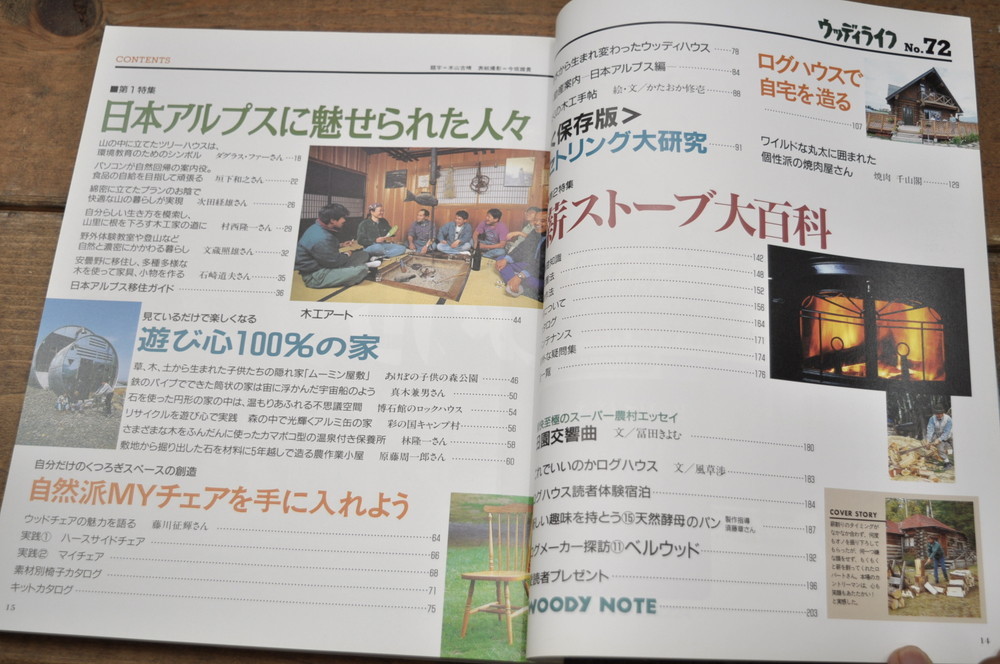 CONTENTS
■第1特集
日本アルプスに魅せられた人々
山の中に立てたツリーハウスは、
環境教育のためのシンボル ダグラス・ファーさん…18
パソコンが自然回帰の案内役。
食品の自給を目指して頑張る 垣下和之さん…22
綿密に立てたプランのお陰で
快適な山の暮らしが実現 次田経雄さん…26
自分らしい生き方を模索し、
山里に根を下ろす木工家の道に 村西隆一さん…29
野外体験教室や登山など
自然と濃密にかかわる暮らし 文蔵照雄さん…32
安曇野に移住し、多種多様な
木を使って家具、小物を作る 石崎道夫さん…35
日本アルプス移住ガイド…36
木工アート…44
見ているだけで楽しくなる
遊び心100%の家
草、木、土から生まれた子供たちの隠れ家「ムーミン屋敷」 あけぼの子供の森公園…46
鉄のパイプでできた筒状の家は宙に浮かんだ宇宙船のよう 真木兼男さん…50
石を使った円形の家の中は、温もりあふれる不思議空間 博石館のロックハウス…54
リサイクルを遊び心で実践 森の中で光輝くアルミ缶の家 彩の国キャンプ村…56
さまざまな木をふんだんに使ったカマボコ型の温泉付き保養所 林隆一さん…58
敷地から掘り出した石を材料に5年越しで造る農作業小屋 原藤周一郎さん…60
自分だけのくつろぎスペースの創造
自然派MYチェアを手に入れよう
ウッドチェアの魅力を語る 藤川征輝さん…64
実践① ハースサイドチェア…66
実践② マイチェア…68
素材別椅子カタログ…71
キットカタログ…75
15
ウッディライフ No.72
から生まれ変わったウッディハウス…78
案内―日本アルプス編…84
の木工手帖 絵・文／かたおか修壱…88
＜保存版＞
トリング大研究…91
ログハウスで
自宅を造る
107
ワイルドな丸太に囲まれた
個性派の焼肉屋さん 焼肉 千山閣…129
2特集
薪ストーブ大百科
…142
…148
…152
…158
ログ…164
テナンス…171
な疑問集…174
覧…176
至極のスーパー農村エッセイ
園交響曲 文／冨田きよむ…180
れでいいのかログハウス 文／風草渉…183
グハウス読者体験宿泊…184
しい趣味を持とう⑮天然酵母のパン 製作指導 須藤章さん…187
グメーカー探訪⑪ベルウッド…192
読者プレゼント…196
WOODY NOTE…203
COVER STORY
薪割りのタイミングが
なかなか合わず、何度
もオノを振り下ろして
もらったが、何一つ嫌
な顔をせず、もくもく
と薪を割ってくれたロ
バートさん。本場のカ
ントリーマンは、心も
笑顔もあたたかい！
と実感した。
14